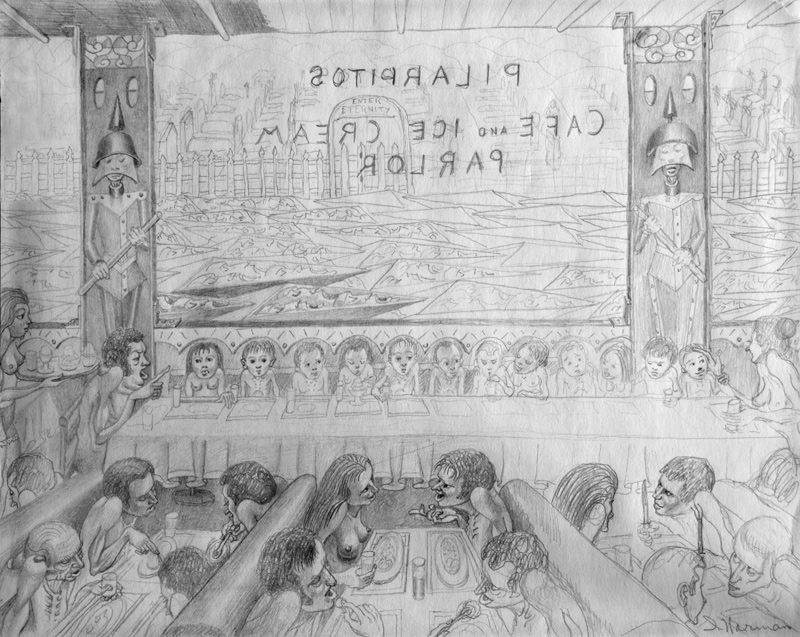 PILARPITOS
ENTER
ETERNITY
CAFE AND ICE CREAM
PARLOR
D. Harman